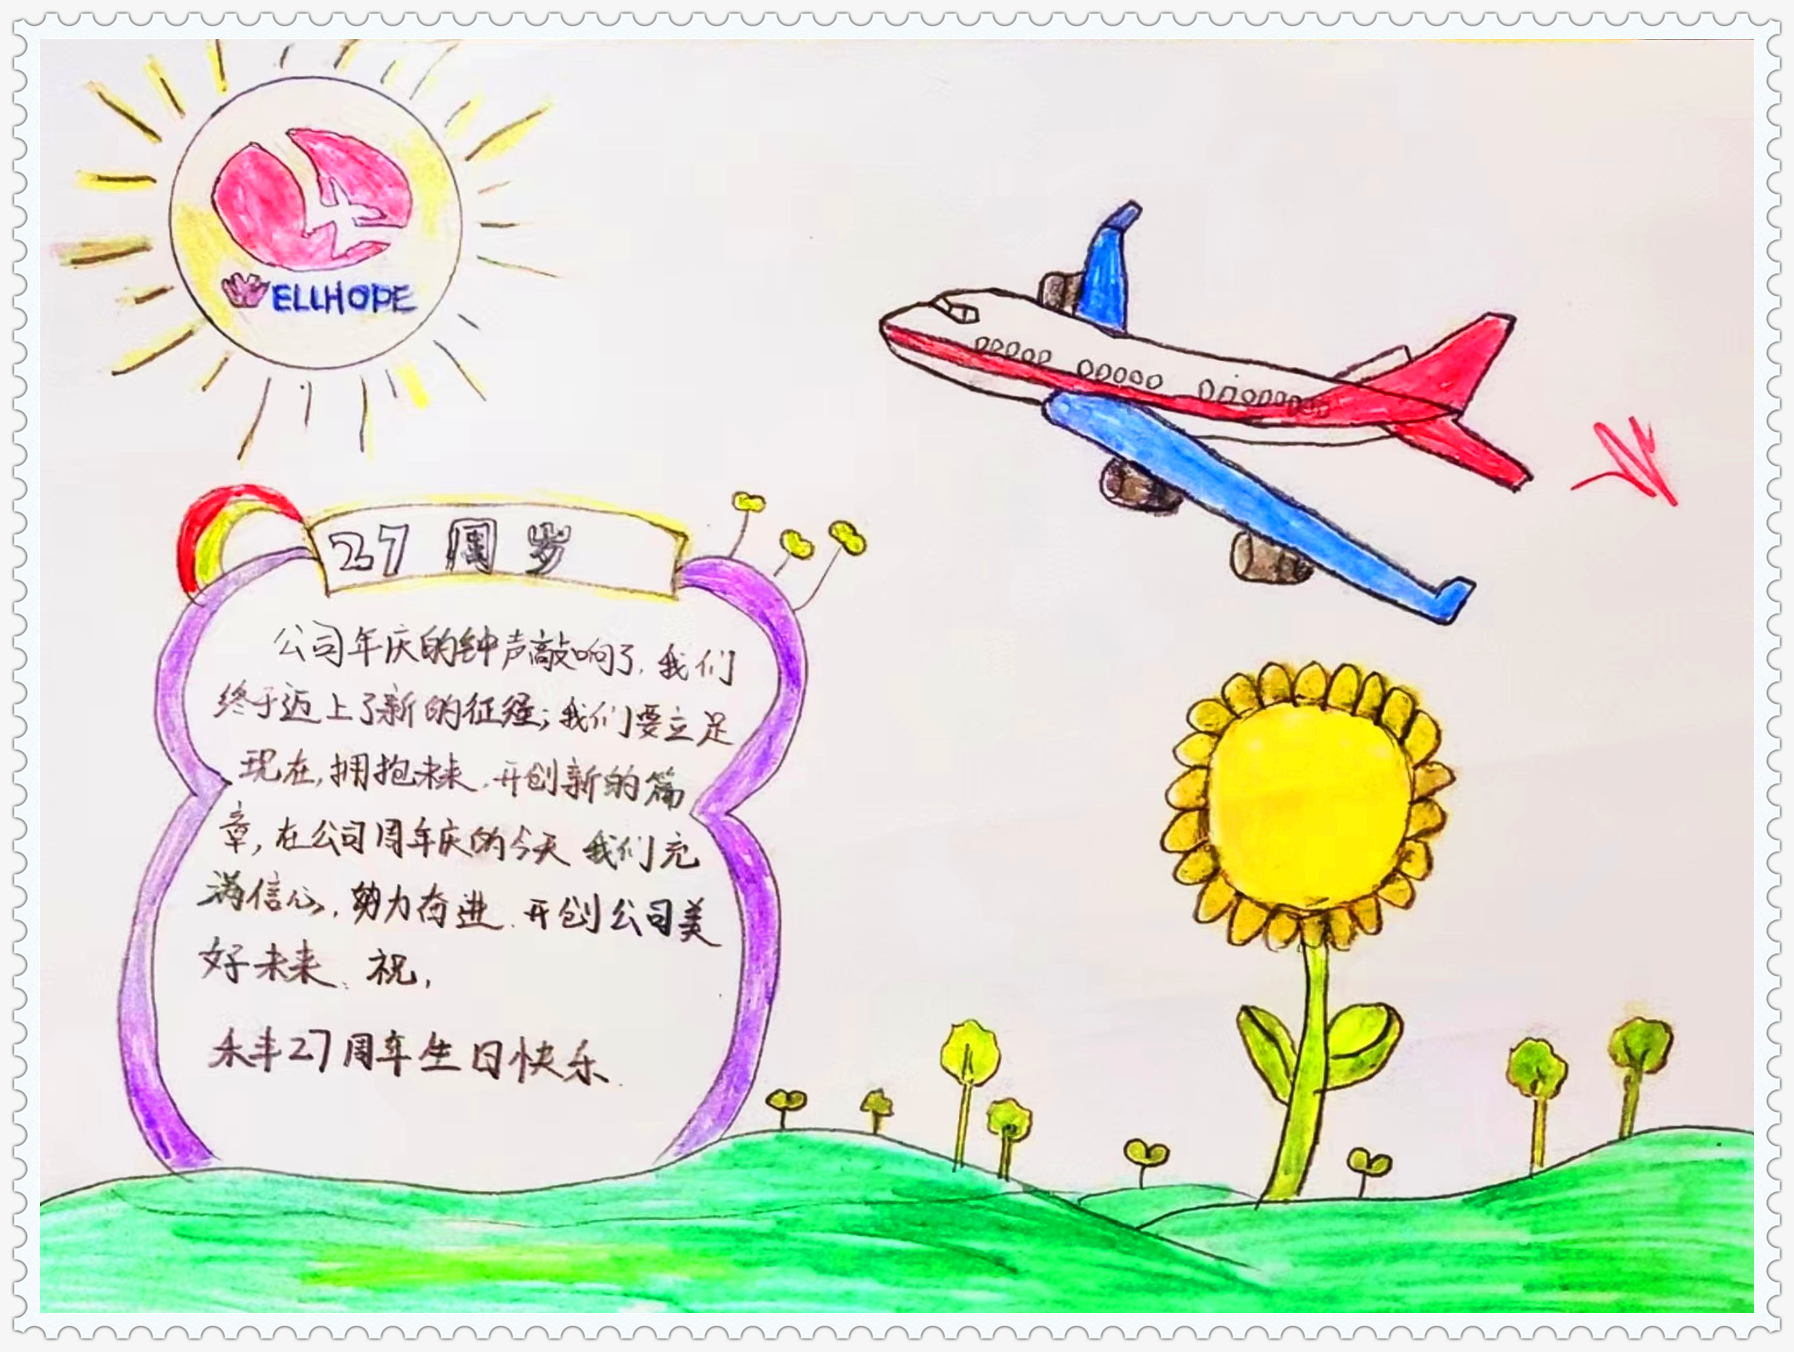 ELLHOPE
27 周岁
公司年庆的钟声敲响了,我们
终于迈上了新的征程;我们要立足
现在,拥抱未来.开创新的篇
章,在公司周年庆的今天 我们充
满信心,努力奋进.开创公司美
好未来、祝,
禾丰27周年生日快乐.